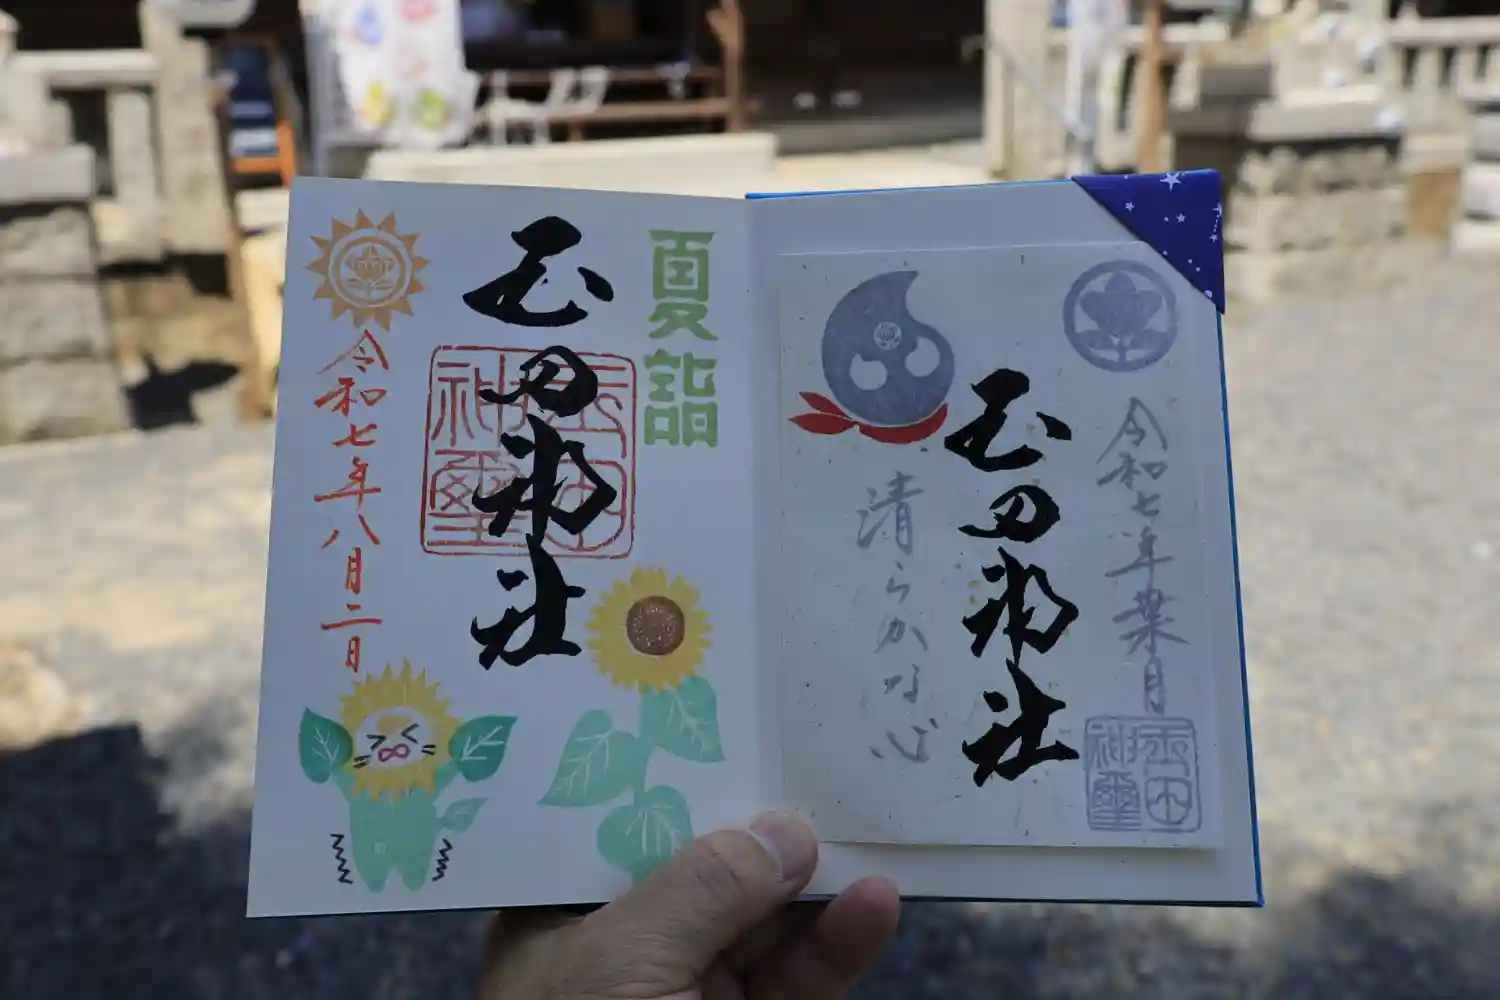 令和七年葉月
玉田神社
清らかな心
玉田
神璽
夏詣
玉田神社
玉田
神璽
令和七年八月二日